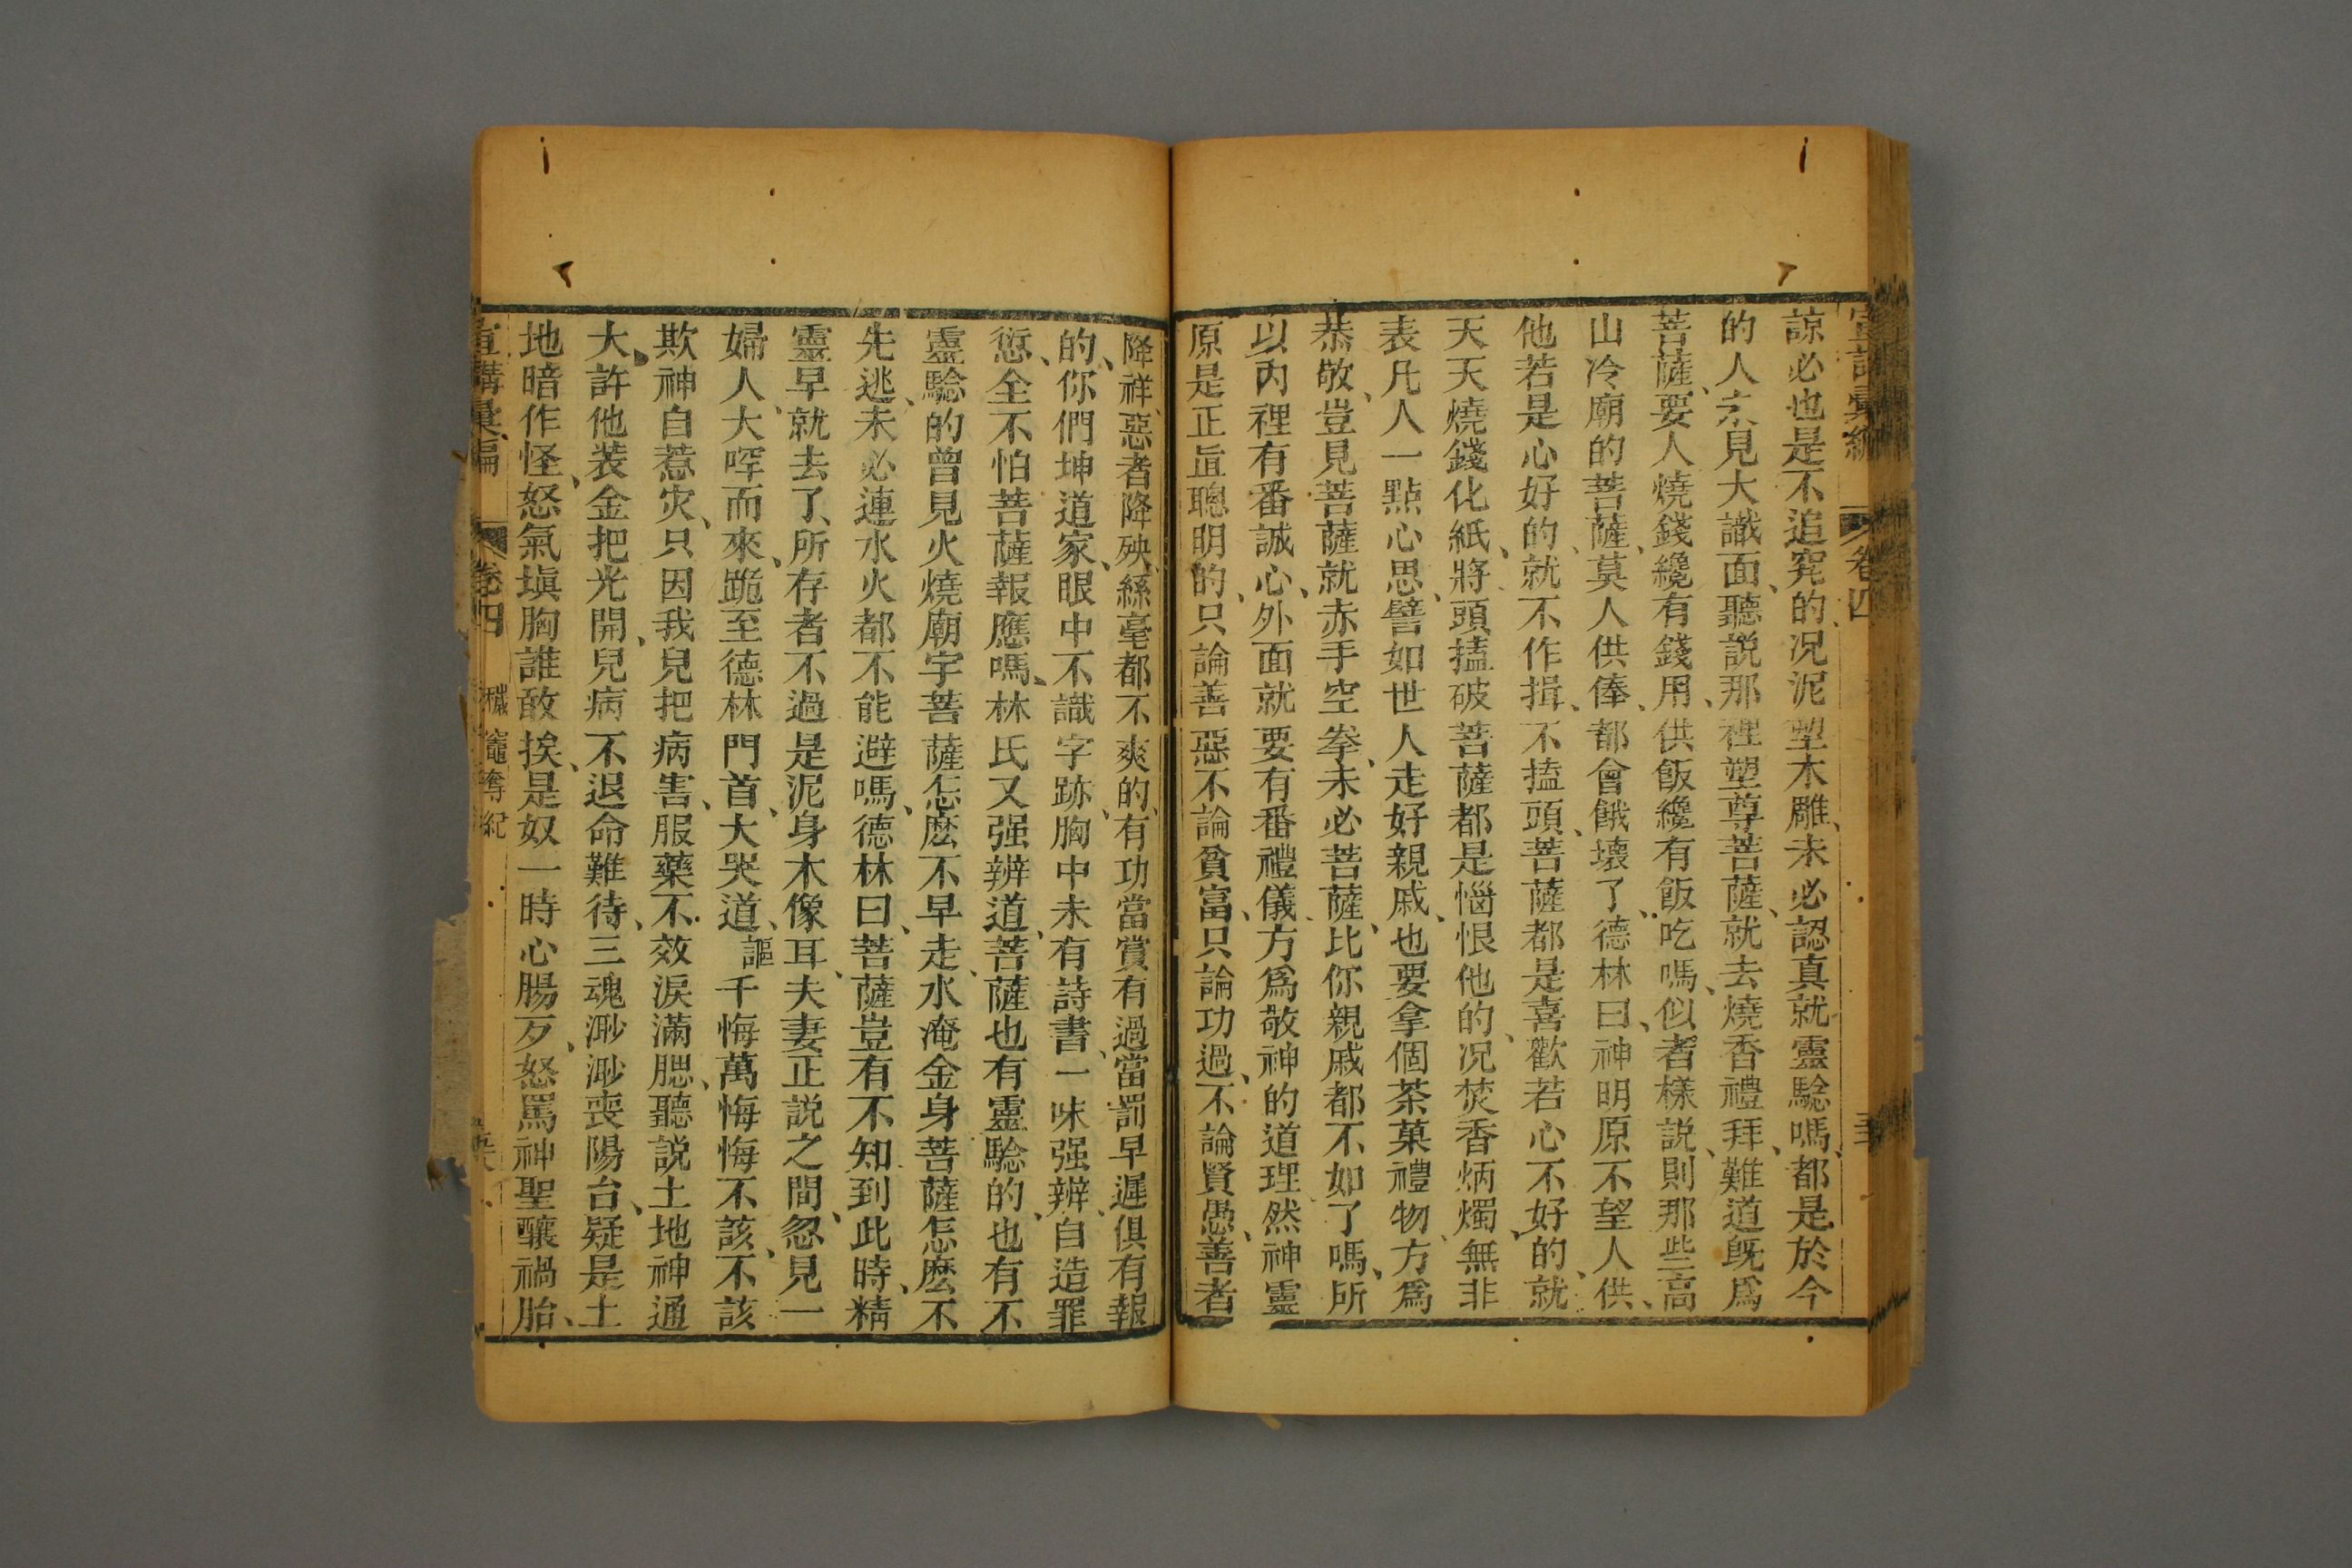 宣講彙編 卷四
諒必也是不追究的、况泥塑木雕、未必認真就靈驗嗎、都是於今
的人、未見大識面、聽説那裡塑尊菩薩、就去燒香禮拜、難道既爲
菩薩、要人燒錢纔有錢用、供飯纔有飯吃嗎、似者樣説、則那些高
山冷廟的菩薩、莫人供俸、都會餓壞了、德林曰、神明原不望人供、
他若是心好的、就不作揖、不搕頭、菩薩都是喜歡、若心不好的、就
天天燒錢化紙、將頭搕破、菩薩都是惱恨他的、况焚香炳燭、無非
表凡人一點心思、譬如世人走好親戚、也要拿個茶菓禮物、方爲
恭敬、豈見菩薩就赤手空拳、未必菩薩、比你親戚都不如了嗎、所
以内裡有番誠心、外面就要有番禮儀、方爲敬神的道理、然神靈
原是正直聰明的、只論善惡、不論貧富、只論功過、不論賢愚、善者
降祥、惡者降殃、絲毫都不爽的、有功當賞、有過當罰、早遲俱有報
的、你們坤道家、眼中不識字跡、胸中未有詩書、一味强辨、自造罪
愆、全不怕菩薩報應嗎、林氏又强辨道、菩薩也有靈驗的、也有不
靈驗的、曾見火燒廟宇、菩薩怎麽不早走、水淹金身、菩薩怎麽不
先逃、未必連水火都不能避嗎、德林曰、菩薩豈有不知、到此時、精
靈早就去了、所存者不過是泥身木像耳、夫妻正説之間、忽見一
婦人、大哭而來、跪至德林門首、大哭道、謳 千悔萬悔悔不該、不該
欺神自惹灾、只因我兒把病害、服藥不效淚滿腮、聽説土地神通
大、許他装金把光開、兒病不退命難待、三魂渺渺喪陽台、疑是土
地暗作怪、怒氣塡胸誰敢挨、是奴一時心腸歹、怒罵神聖釀禍胎、
宣講彙編 卷四 穢竈奪紀